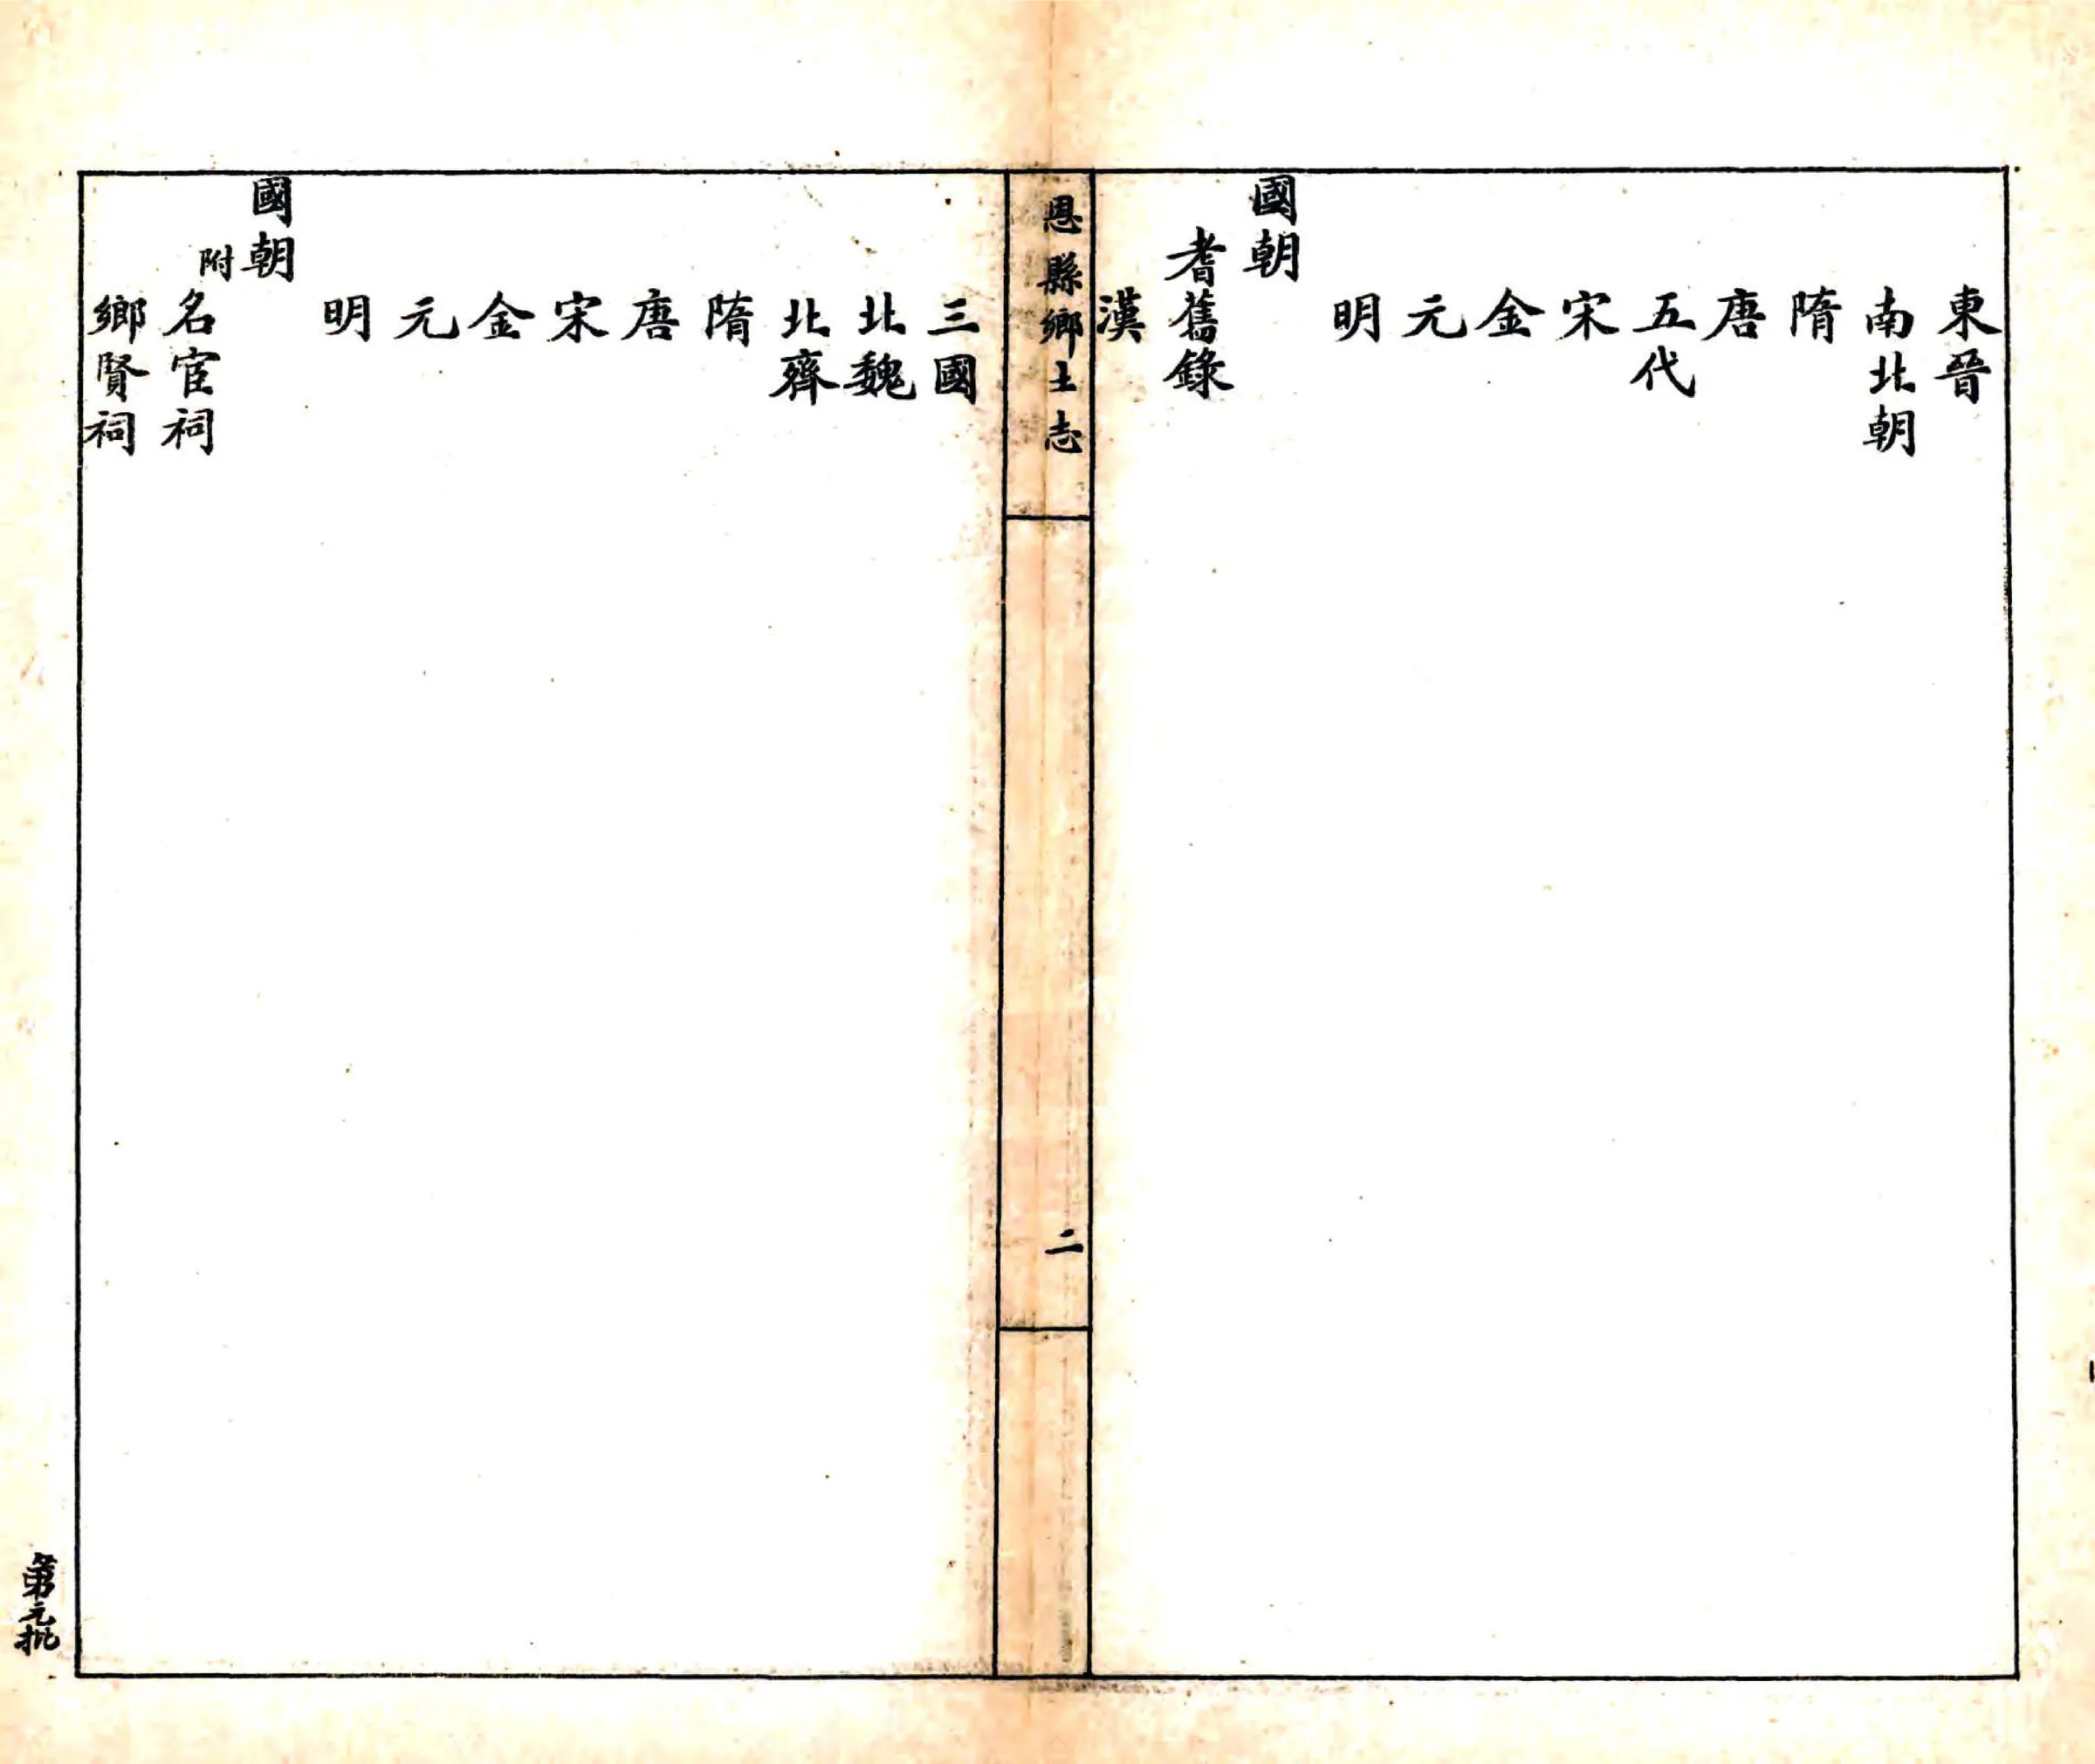 東晉
南北朝
隋
唐
五代
宋
金
元
明
國朝
耆舊錄
漢
恩縣鄉土志
二
三國
北魏
北齊
隋
唐
宋
金
元
明
國朝
附
名宦祠
鄉賢祠